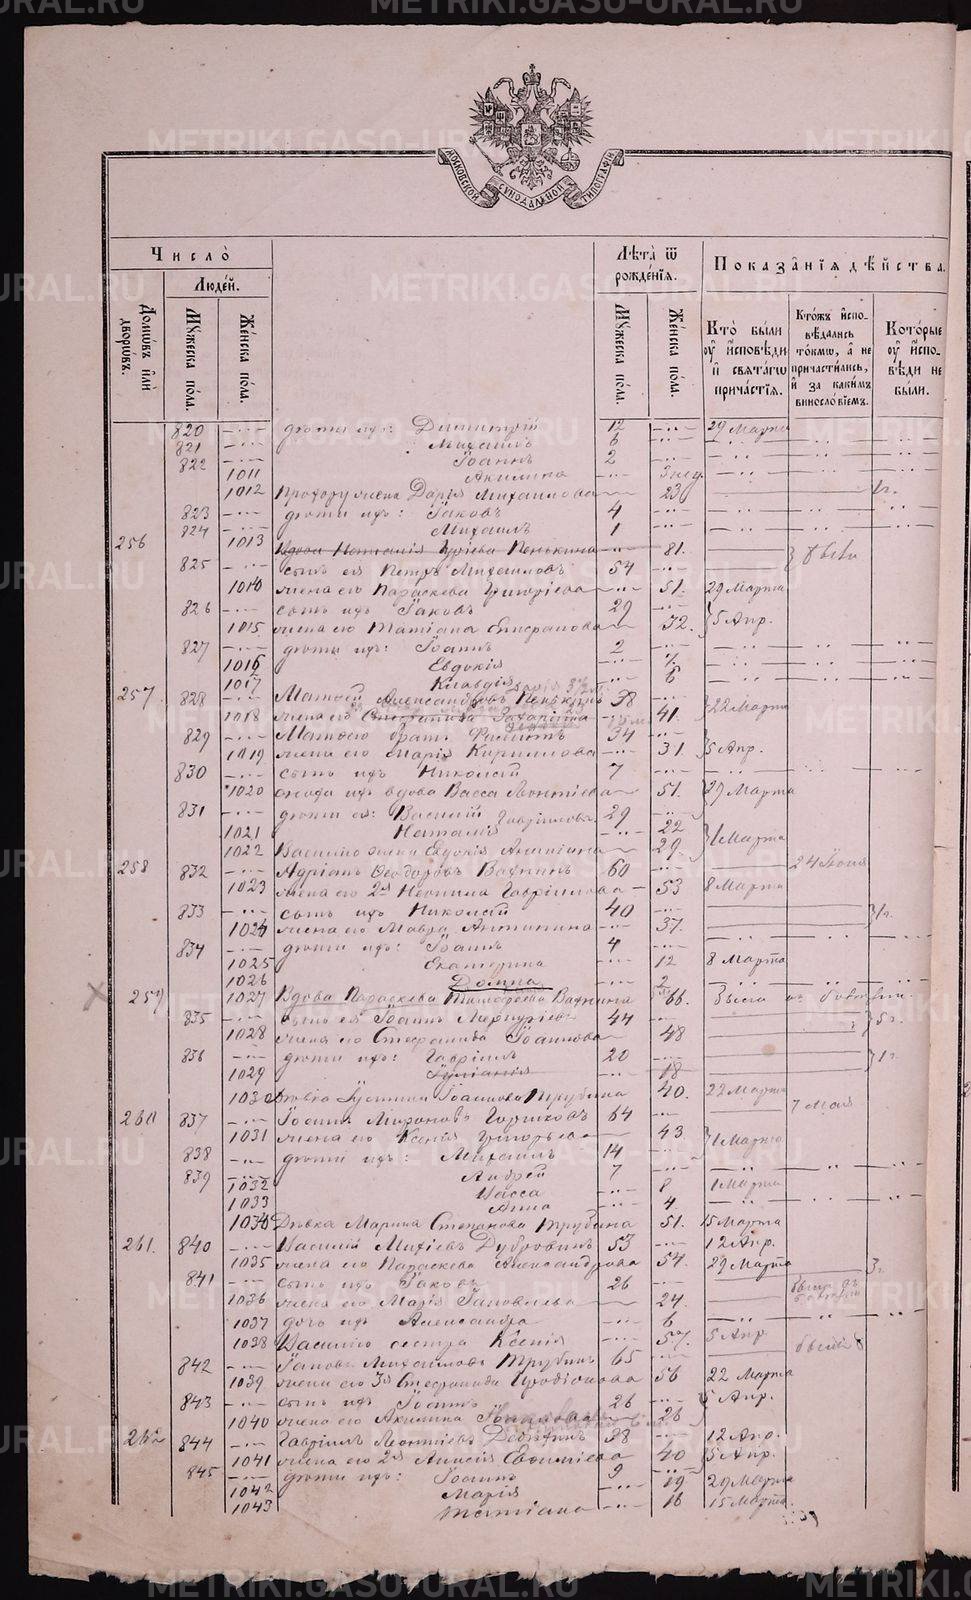 METRIKI.GASO-URAL.RU
МОСКОВСКОЙ СУНОДАЛЬНОЙ ТИПОГРАФІИ
Число̀
Лѣта̀ ѿ рожде́нїѧ.
Показа̑нїѧ дѣ́йства.
Люде́й.
Домѡ́въ и҆лѝ дворѡ́въ.
Мꙋ́жеска по́ла.
Же́нска по́ла.
Мꙋ́жеска по́ла.
Же́нска по́ла.
Кто̀ бы́ли ᲂу҆ и҆сповѣ́ди и҆ свѧта́гѡ прича́стїѧ.
Кто́жъ и҆спо-вѣ́дались то́кмѡ, а҆ не причасти́лись, и҆ за каки́мъ винослѡ́вїемъ.
Кото́рые ᲂу҆ и҆спо-вѣ́ди не бы́ли.
820 дѣти ихъ: Димитрій 12 29 Марта
821 Михаилъ 6
822 Іоаннъ 2
1011 Акилина 3 нед.
1012 Прохору жена Дарія Михаилова 23 1 г.
823 дѣти ихъ: Іаковъ 4
824 Михаилъ 1
256 1013 Вдова Наталія Пенькина 81.
825 сынъ ея Петръ Михаиловъ 54
1014 жена его Параскева Григоріева 51. 29 Марта
826 сынъ ихъ Іаковъ 29
1015 жена его Татіана 32. 5 Апр.
827 дѣти ихъ: Іоаннъ 2
1016 Евдокія
1017 Клавдія 6
257 828 Матѳей Александровъ Пенькинъ 38 22 Марта
1018 жена его Стефанида Захаріина 41.
829 Матѳею братъ Филиппъ 34
1019 жена его Марія Кириллова 31. 5 Апр.
830 сынъ ихъ Николай 7
1020 вдова Васса Леонтіева 51. 29 Марта
831 дѣти ея: Василій Гавріиловъ 29
1021 Наталія 22 1 Марта
1022 Василію жена Евдокія 29
258 832 Адріанъ Ѳеодоровъ Вяткинъ 60 24 Іюня
1023 жена его 2я Неонила Гавріилова 53 8 Марта
833 сынъ ихъ Николай 40
1024 жена его Мавра Антипина 37. 1 г.
834 дѣти ихъ: Іоаннъ 4
1025 Екатерина 12 8 Марта
1026 Домна 2
259 1027 Вдова Параскева Тимоѳеева Вяткина 66.
835 сынъ ея Іоаннъ Меркуріевъ 44
1028 жена его Стефанида Іоаннова 48 5 г.
836 дѣти ихъ: Гавріилъ 20
1029 Іуліанія 18 1 г.
1030 Дѣвка Іустина Іоаннова Трубина 40. 22 Марта
260 837 Іоаннъ Мироновъ 64 7 Мая
1031 жена его Ксенія Григорьева 43 1 Марта
838 дѣти ихъ: Михаилъ 14
839 Андрей 7
1032 Васса 8 1 Марта
1033 Анна 4
1034 Дѣвка Марина Степанова Трубина 51. 15 Марта
261. 840 Василій Дубровинъ 53 12 Апр.
1035 жена его Параскева Александрова 54. 29 Марта
841 сынъ ихъ Іаковъ 26 3 г.
1036 жена его Марія 24
1037 дочь ихъ Александра 6
1038 Василію сестра Ксенія 57. 5 Апр.
842 Михаиловъ Трубинъ 65
1039 жена его 3я Стефанида 56 22 Марта
843 сынъ ихъ Іоаннъ 26 5 Апр.
1040 жена его Акилина 26
262 844 Гавріилъ Леонтіевъ 38 12 Апр.
1041 жена его 2я Анисія Евѳиміева 40 5 Апр.
845 дѣти ихъ: Іоаннъ 9
1042 Марія 19 29 Марта
1043 Татіана 16 15 Марта.